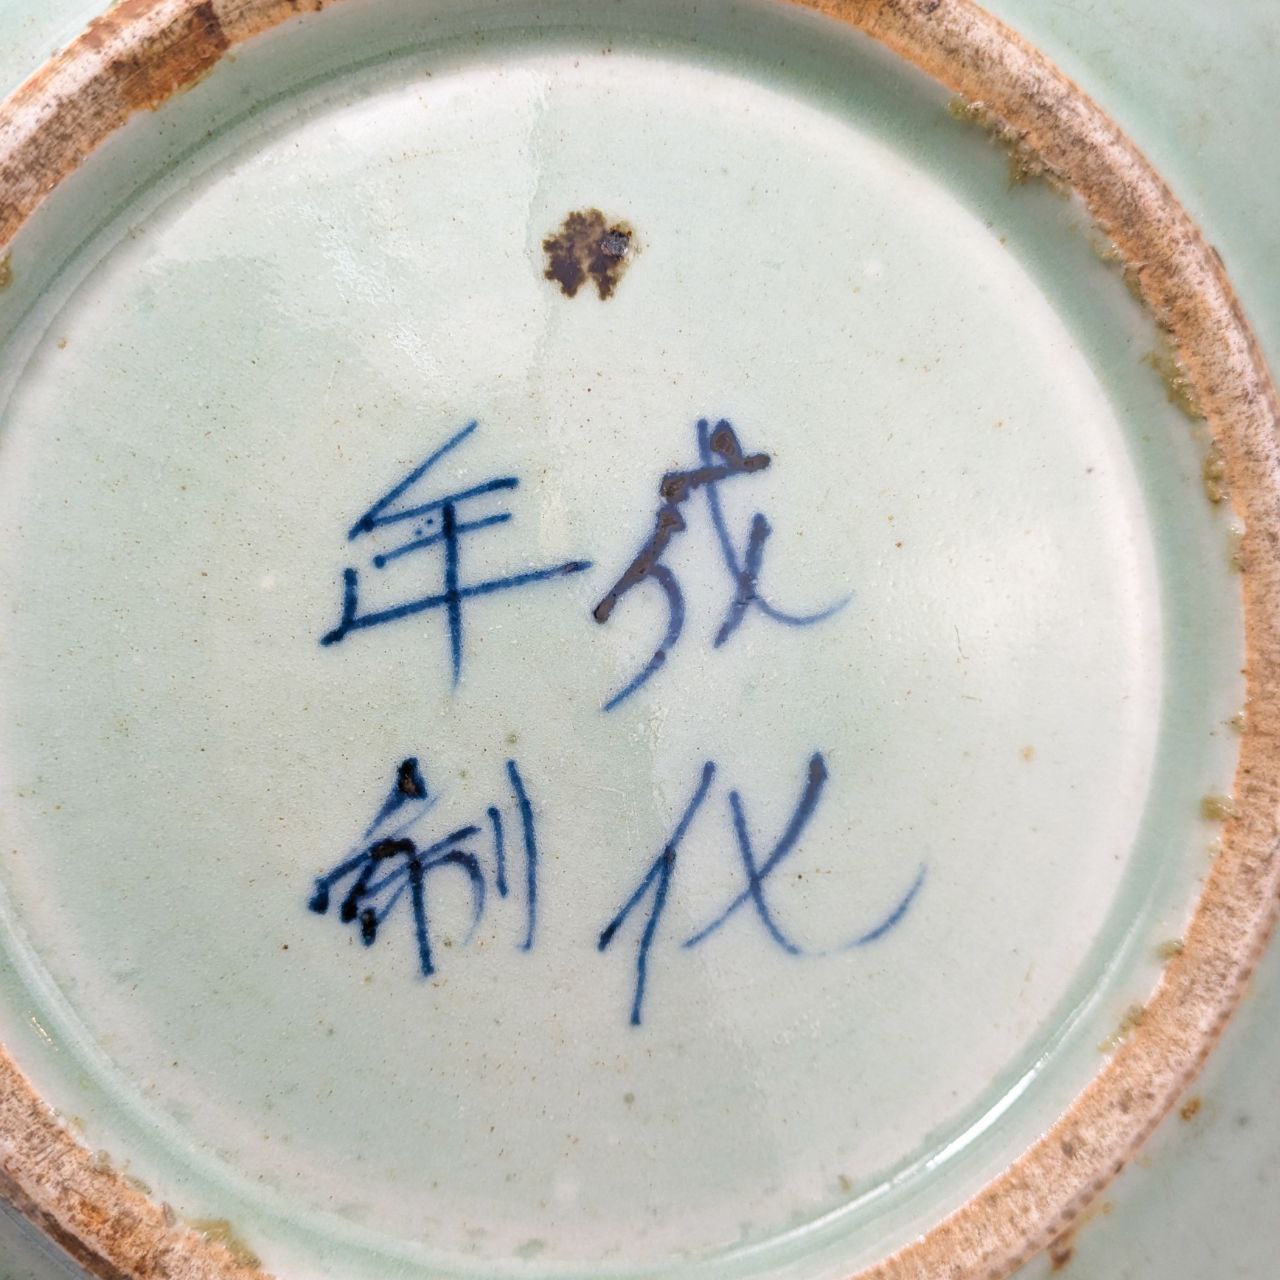 成化
年制